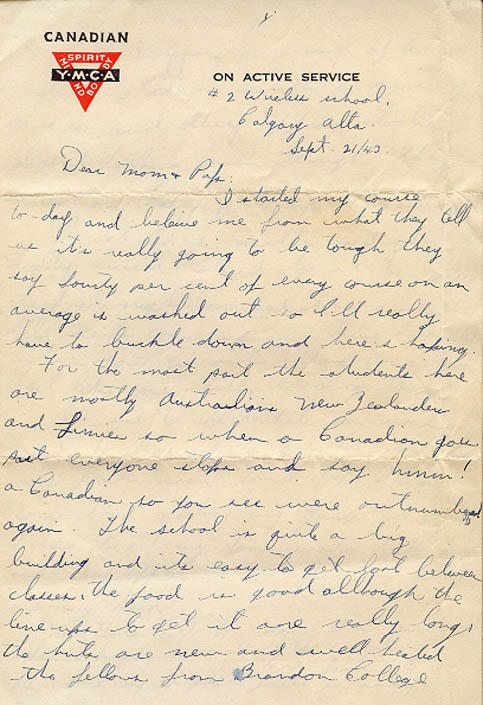 CANADIAN
SPIRIT
MIND
BODY
Y·M·C·A
ON ACTIVE SERVICE
# 2 Wireless school,
Calgary Alta.
Sept. 21/43.
Dear Mom & Pop.
I started my course
to-day and beleive me from what they tell
us it's really going to be tough they
say fourty per cent of every course on an
average is washed out so I'll really
have to buckle down and here's hoping.
For the most part the students here
are mostly Australians New Zealanders
and Limies so when a Canadian goes
past everyone stops and say hmm!
a Canadian so you see were outnumbered
again. The school is quite a big
building and its easy to get lost between
classes, the food is good although the
line-ups to get it are really long,
the huts are new and well heated
the fellows from Brandon College